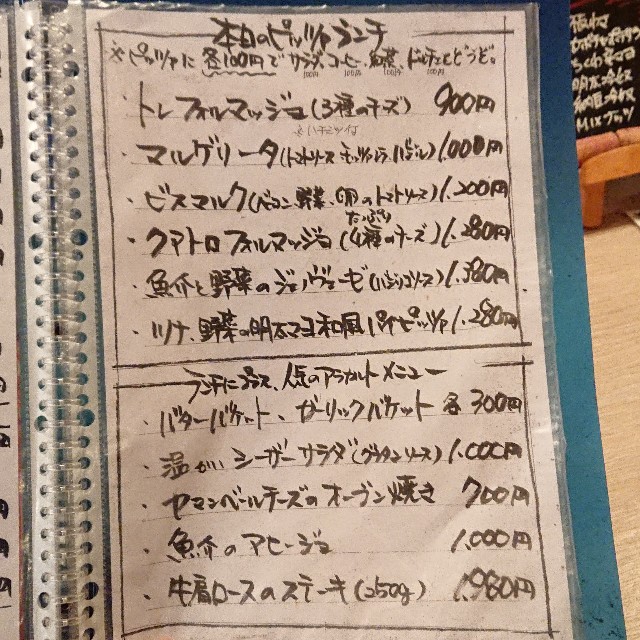 本日のピッツァランチ
※ピッツァに各100円でサラダ、コーヒー、前菜、ドルチェをどうぞ。
100円 100円 100円 100円
・トレフォルマッジョ(3種のチーズ) 900円
※ハチミツ付
・マルゲリータ(トマトソース モッツァレラ バジル) 1.000円
・ビスマルク(ベーコン 野菜、卵のトマトソース) 1.200円
たっぷり
・クアトロフォルマッジョ(4種のチーズ) 1.280円
・魚介と野菜のジェノヴェーゼ(バジルソース) 1.380円
・ツナ、野菜の明太マヨ和風パイピッツァ 1.280円
ランチにプラス、人気のアラカルトメニュー
・バターバケット、ガーリックバケット 各300円
・温かいシーザーサラダ(グラタンソース) 1.000円
・カマンベールチーズのオーブン焼き 700円
・魚介のアヒージョ 1.000円
・牛肩ロースのステーキ(250g) 1.980円